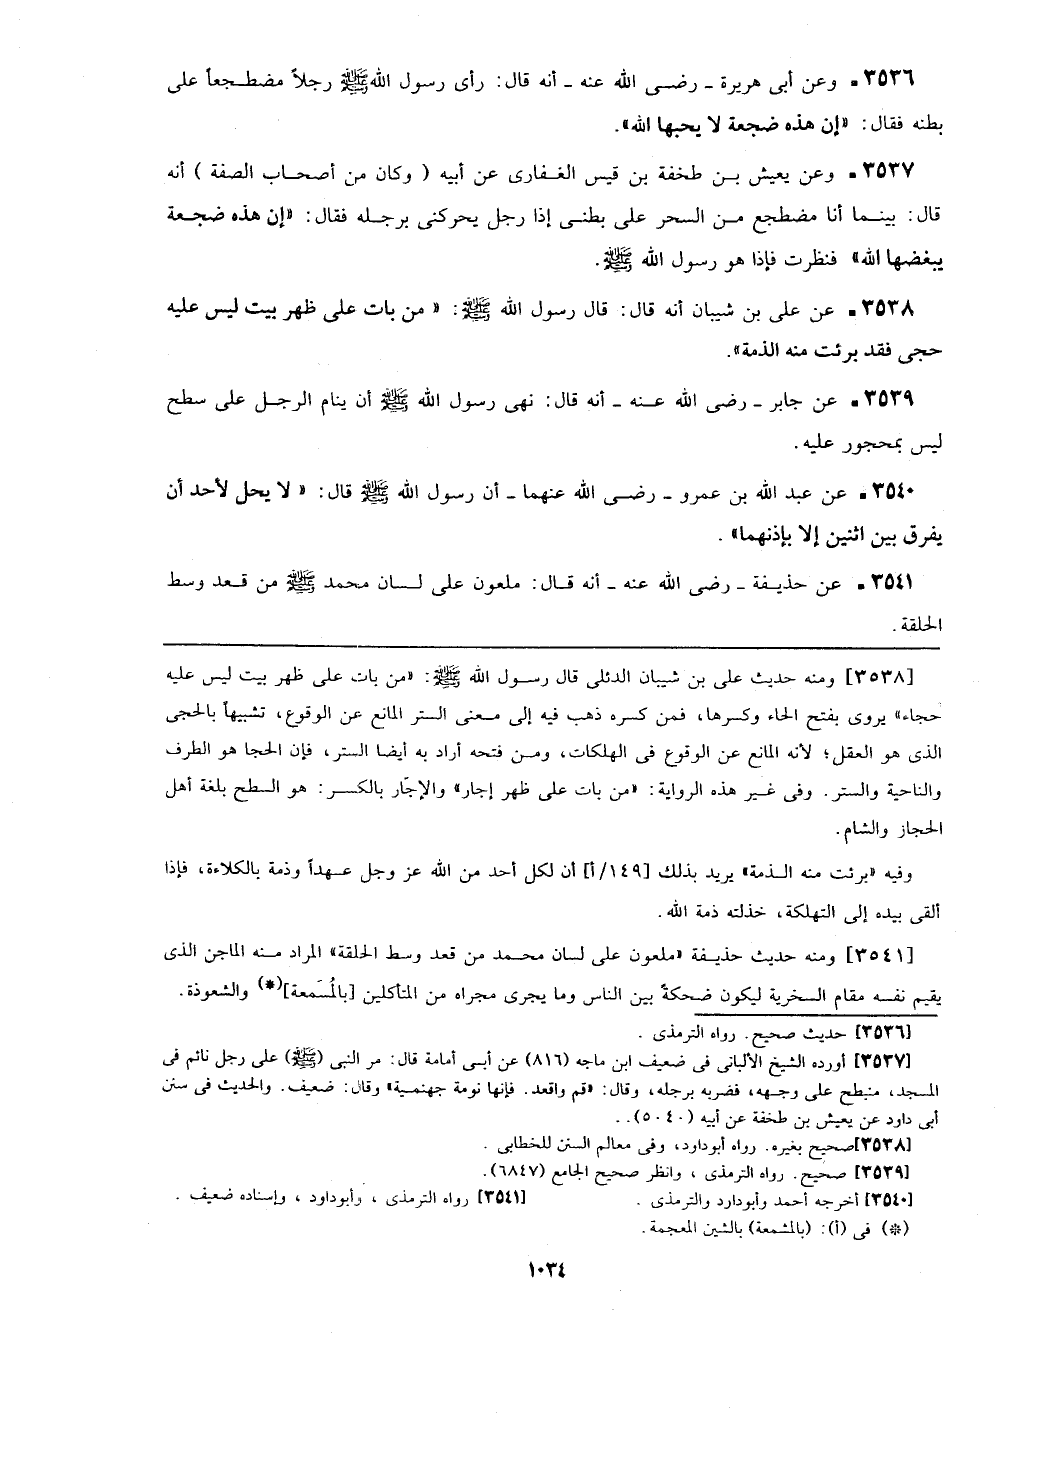 ٣٥٣٦ـ وعن أبى هريرة ـ رضـى الله عنه ـ أنه قال: رأى رسول اللهﷺ رجلاً مضطـجعاً على
بطنه فقال: «إن هذه ضجعة لا يحبها الله».
٣٥٣٧ـ وعن يعيش بـن طخفة بن قيس الغفارى عن أبيه ( وكان من أصحاب الصفة ) أنه
قال: بينـما أنا مضطجع مـن السحر على بطنى إذا رجل يحركنى برجـله فقال: «إن هذه ضجعة
يبغضها الله» فنظرت فإذا هو رسول الله ﷺ.
٣٥٣٨ـ عن على بن شيبان أنه قال: قال رسول الله ﷺ: « من بات على ظهر بيت ليس عليه
حجى فقد برئت منه الذمة».
٣٥٣٩ـ عن جابر ـ رضى الله عـنه ـ أنه قال: نهى رسول الله ﷺ أن ينام الرجـل على سطح
ليس بمحجور عليه.
٣٥٤٠ـ عن عبد الله بن عمرو ـ رضـى الله عنهما ـ أن رسول الله ﷺ قال: « لا يحل لأحد أن
يفرق بين اثنين إلا بإذنهما» .
٣٥٤١ـ عن حذيـفة ـ رضى الله عنه ـ أنه قـال: ملعون على لسـان محمد ﷺ من قـعد وسط
الحلقة.
[٣٥٣٨] ومنه حديث على بن شيبان الدئلى قال رسـول الله ﷺ: «من بات على ظهر بيت ليس عليه
حجاء» يروى بفتح الحاء وكسرها، فمـن كسره ذهب فيه إلى مـعنى الستر المانع عن الوقوع، تشبيهاً بالحجى
الذى هو العقل؛ لأنه المانع عن الوقوع فى الهلكات، ومـن فتحه أراد به أيضا الستر، فإن الحجا هو الطرف
والناحية والستر. وفى غـير هذه الرواية: «من بات على ظهر إجار» والإجّار بالكسـر: هو السطح بلغة أهل
الحجاز والشام.
وفيه «برئت منه الـذمة» يريد بذلك [١٤٩/أ] أن لكل أحد من الله عز وجل عـهداً وذمة بالكلاءة، فإذا
ألقى بيده إلى التهلكة، خذلته ذمة الله.
[٣٥٤١] ومنه حديث حذيـفة «ملعون على لسان محـمد من قعد وسط الحلقة» المراد مـنه الماجن الذى
يقيم نفسه مقام السخرية ليكون ضحكة بين الناس وما يجرى مجراه من المتأكلين [بالمُسَمعة](*) والشعوذة.
[٣٥٣٦] حديث صحيح. رواه الترمذى .
[٣٥٣٧] أورده الشيخ الألبانى فى ضعيف ابن ماجه (٨١٦) عن أبـى أمامة قال: مر النبى (ﷺ) على رجل نائم فى
المسجد، منبطح على وجـهه، فضربه برجله، وقال: «قم واقعد. فإنها نومة جهنمية» وقال: ضعيف. والحديث فى سنن
أبى داود عن يعيش بن طخفة عن أبيه (٥٠٤٠)..
[٣٥٣٨]صحيح بغيره. رواه أبوداود، وفى معالم السنن للخطابى .
[٣٥٣٩] صحيح. رواه الترمذى ، وانظر صحيح الجامع (٦٨٤٧).
[٣٥٤٠] أخرجه أحمد وأبودارد والترمذى . [٣٥٤١] رواه الترمذى ، وأبوداود ، وإسناده ضعيف .
(*) فى (أ): (بالمشمعة) بالشين المعجمة.
١٠٣٤